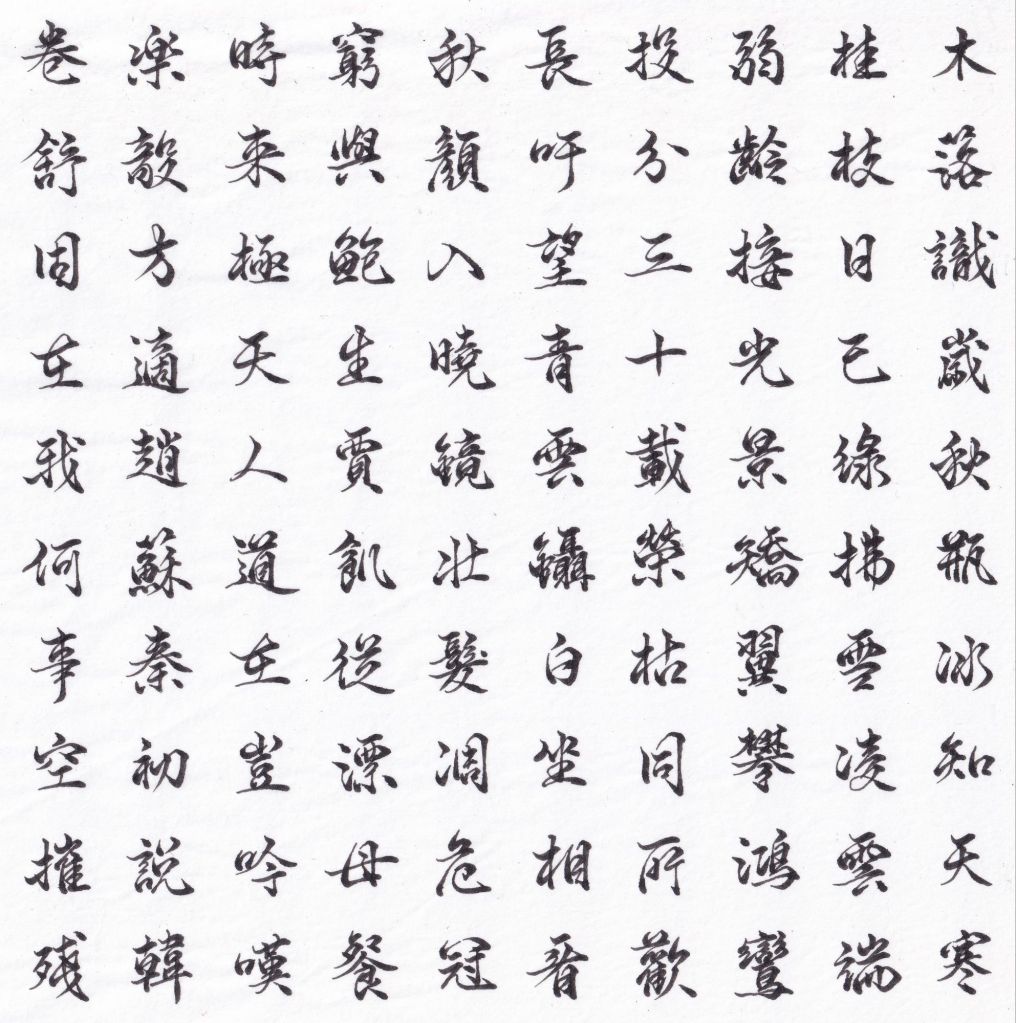 木落識歲秋瓶冰知天寒
桂枝日已綠拂雪凌雲端
弱齡接光景矯翼攀鴻鸞
投分三十載榮枯同所歡
長吁望青雲鑷白坐相看
秋顏入曉鏡壯髮凋危冠
窮與鮑生賈飢從漂母餐
時来極天人道在豈吟嘆
楽毅方適趙蘇秦初說韓
卷舒固在我何事空摧残